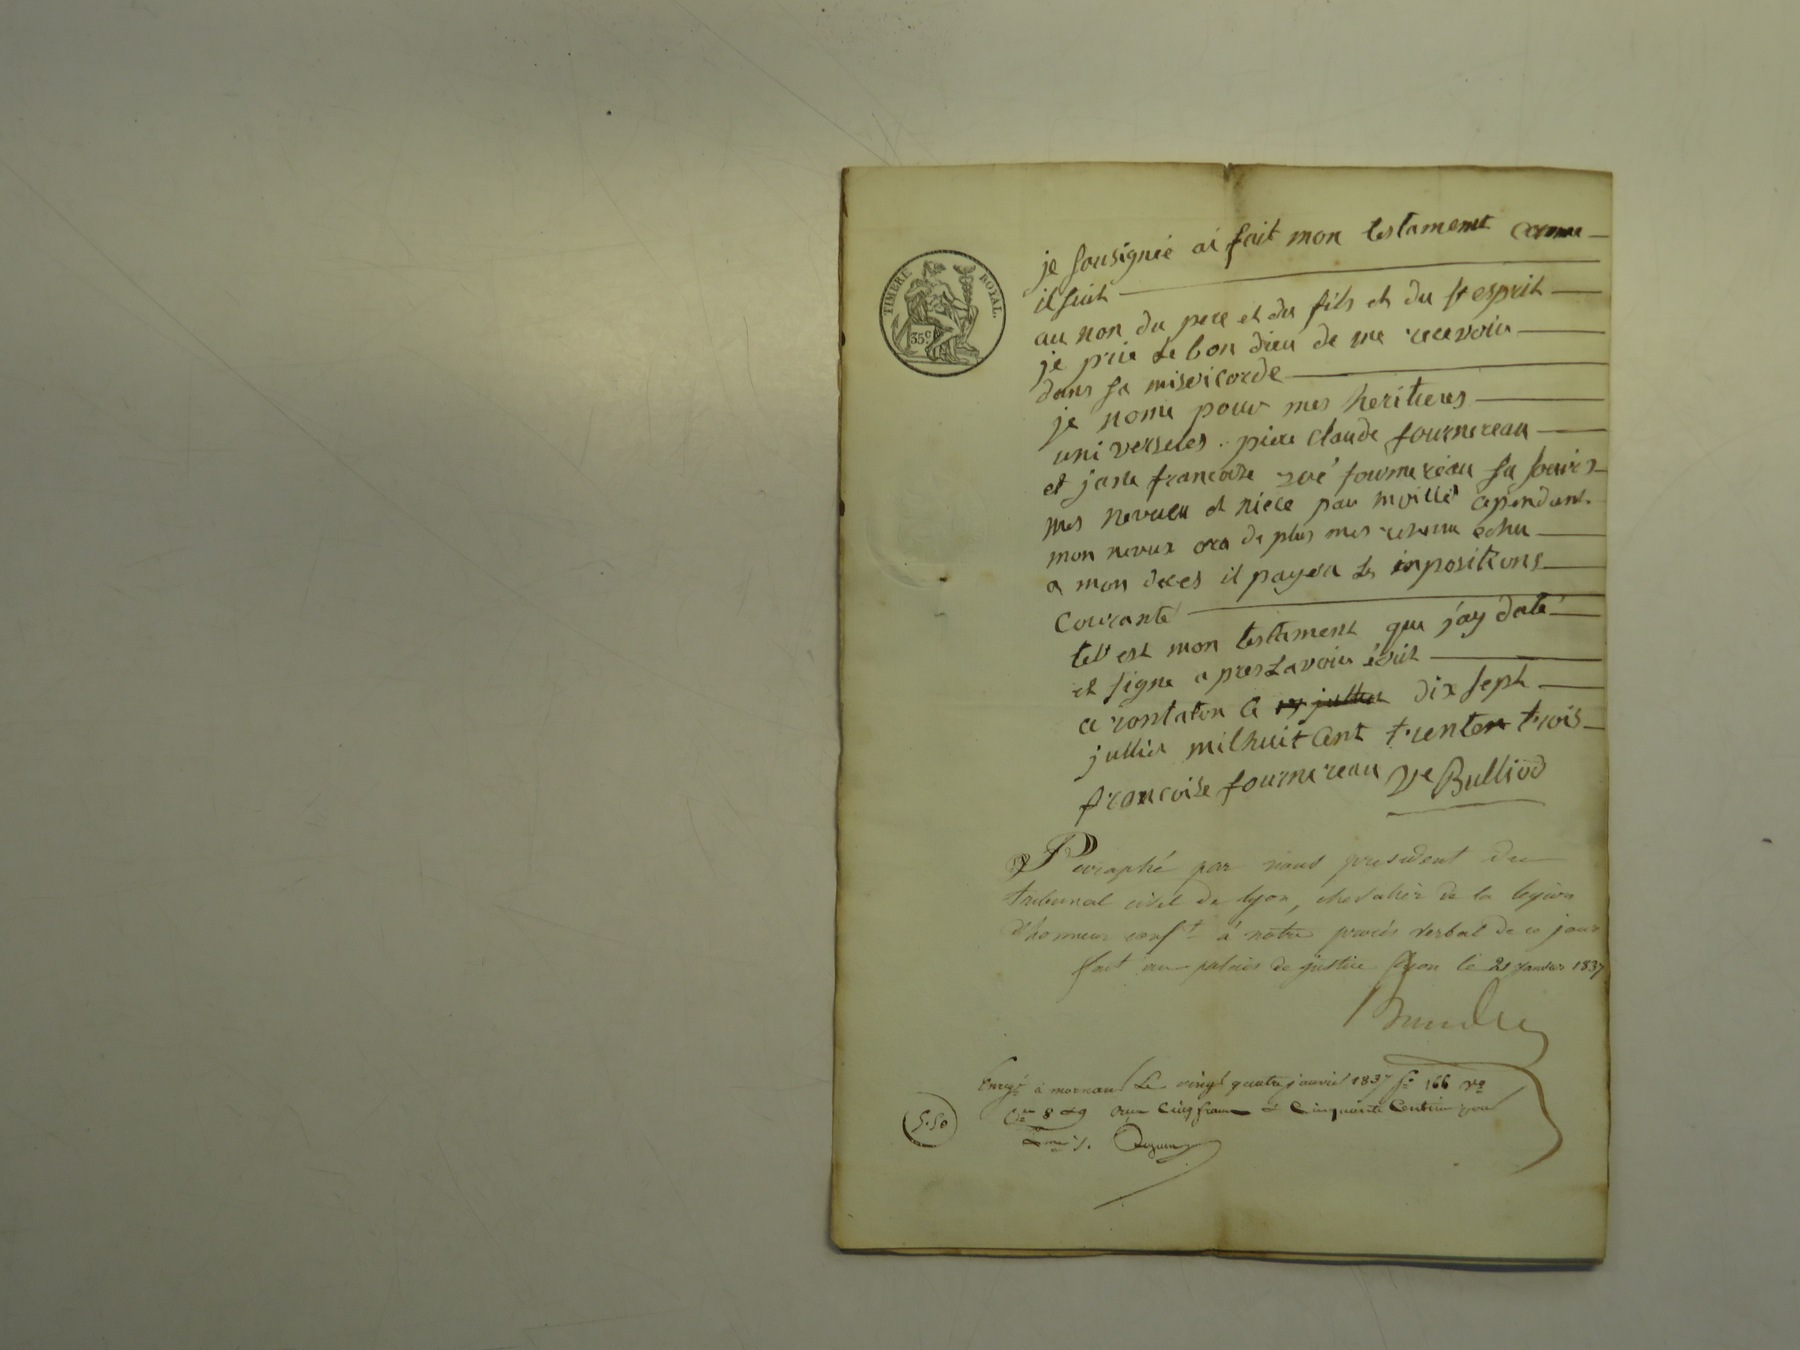 TIMBRE ROYAL.
35 c
je sousignée ai fait mon testament comme
il suit
au non du pere et du fils et du st esprit
je prie le bon dieu de me recevoir
dans sa misericorde
je nome pour mes heritieres
universeles. piere claude fournereau
et jane francoise zoé fournereau sa soeur
mes neveux et niece par moitié cependant
mon neveux ora de plus mes revenu echu
a mon deces il payera les inpositions
courante
tel est mon testament que j'ay daté
et signe a pres lavoir écrit
a rontalon le 17 jullier dix sept
jullier mil huit cent trente trois
francoise fournereau Ve Bulliod
Paraphé par nous president du
tribunal civil de lyon, chevalier de la legion
d'honneur conft à notre procès verbal de ce jour
fait au palais de justice Lyon le 21 janvier 1837
Enregé à mornant Le vingt quatre janvier 1837 fo 166 Vo
Cse 8 et 9 reçu cinq francs et cinquante centimes pour
5.50